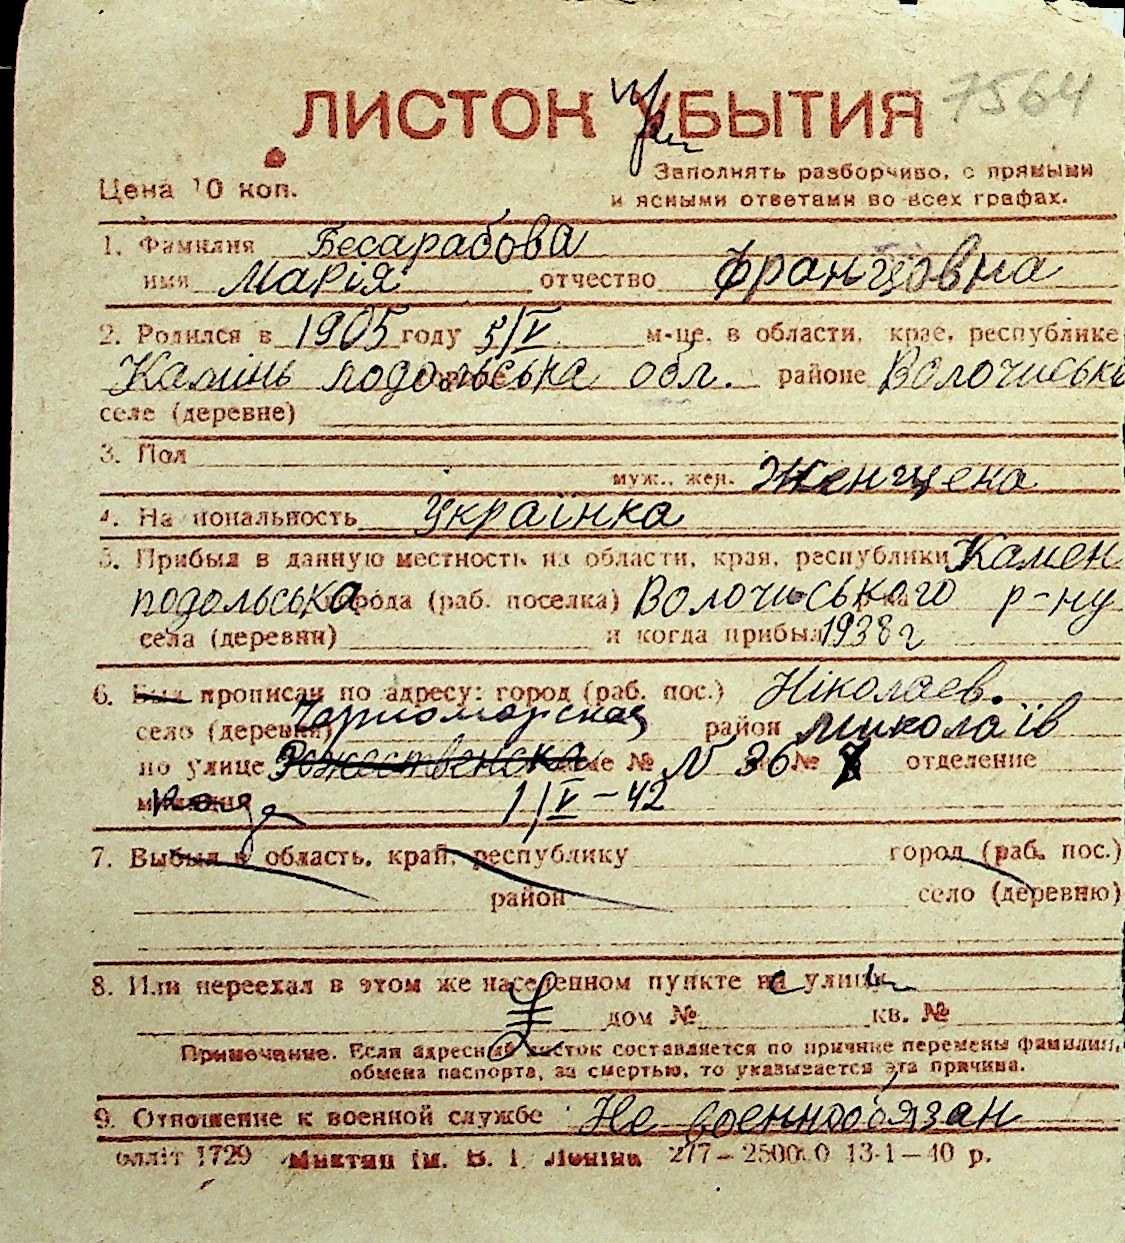 7564
ЛИСТОК УБЫТИЯ
при
Цена 10 коп.
Заполнять разборчиво, с прямыми
и ясными ответами во всех графах.
1. Фамилия Бесарабова
имя Марія отчество Францовна
2. Родился в 1905 году 5/V м-це, в области, крае, республике
Камінь подольська обл. районе Волочиськ
селе (деревне)
3. Пол
муж., жен. Женщена
4. Национальность Українка
5. Прибыл в данную местность из области, края, республики Камен
подольська города (раб. поселка) Волочиського р-ну
села (деревни) и когда прибыл 1938 г
6. Был прописан по адресу: город (раб. пос.) Ніколаев.
село (деревня) Чорноморская район Миколаїв
по улице Рожественська № N 36 № 7 отделение
милиции
1/V-42
7. Выбыл в область, край, республику город (раб. пос.)
район село (деревню)
8. Или переехал в этом же населенном пункте на улицу
дом № кв. №
Примечание. Если адресный листок составляется по причине перемены фамилии,
обмена паспорта, за смертью, то указывается эта причина.
9. Отношение к военной службе Не военнообязан
олліт 1729 Миктип ім. В. І. Леніна 277—250000 13-1—40 р.